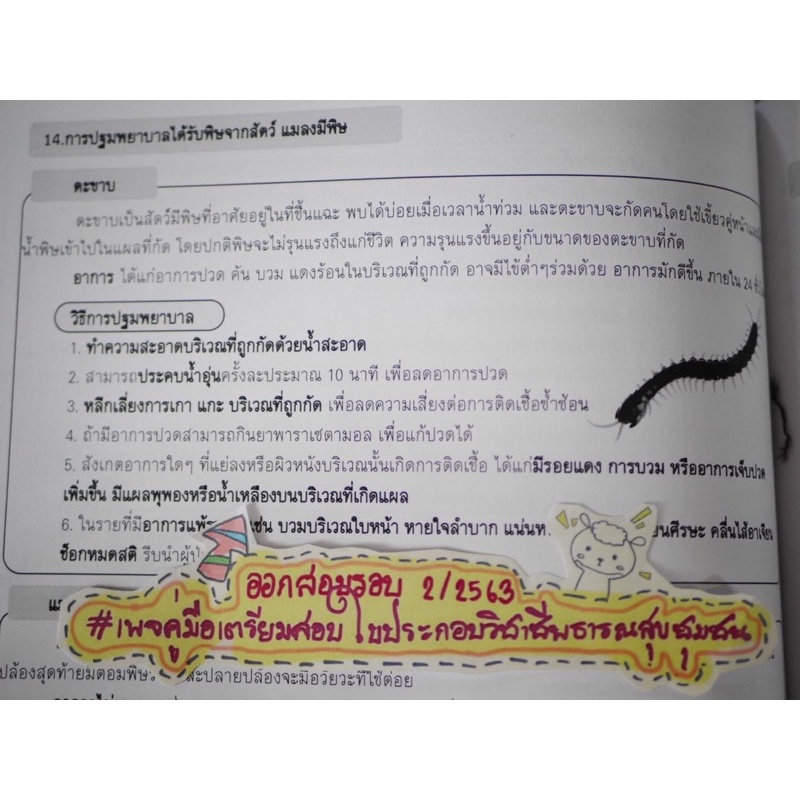 14.การปฐมพยาบาลได้รับพิษจากสัตว์ แมลงมีพิษ
ตะขาบ
ตะขาบเป็นสัตว์มีพิษที่อาศัยอยู่ในที่ชื้นแฉะ พบได้บ่อยเมื่อเวลาน้ำท่วม และตะขาบจะกัดคนโดยใช้เขี้ยวคู่หน้า
น้ำพิษเข้าไปในแผลที่กัด โดยปกติพิษจะไม่รุนแรงถึงแก่ชีวิต ความรุนแรงขึ้นอยู่กับขนาดของตะขาบที่กัด
อาการ ได้แก่อาการปวด คัน บวม แดงร้อนในบริเวณที่ถูกกัด อาจมีไข้ต่ำๆร่วมด้วย อาการมักดีขึ้น ภายใน 24
วิธีการปฐมพยาบาล
1. ทำความสะอาดบริเวณที่ถูกกัดด้วยน้ำสะอาด
2. สามารถประคบน้ำอุ่นครั้งละประมาณ 10 นาที เพื่อลดอาการปวด
3. หลีกเลี่ยงการเกา แกะ บริเวณที่ถูกกัด เพื่อลดความเสี่ยงต่อการติดเชื้อซ้ำซ้อน
4. ถ้ามีอาการปวดสามารถกินยาพาราเซตามอล เพื่อแก้ปวดได้
5. สังเกตอาการใดๆ ที่แย่ลงหรือผิวหนังบริเวณนั้นเกิดการติดเชื้อ ได้แก่มีรอยแดง การบวม หรืออาการเจ็บปวด
เพิ่มขึ้น มีแผลพุพองหรือน้ำเหลืองบนบริเวณที่เกิดแผล
6. ในรายที่มีอาการแพ้ เช่น บวมบริเวณใบหน้า หายใจลำบาก แน่นห นศีรษะ คลื่นไส้อาเจียน
ช็อกหมดสติ รีบนำผู้ป
ออกสอบรอบ 2/2563
#เพจคู่มือเตรียมสอบ ใบประกอบวิชาชีพสาธารณสุขชุมชน
ปล้องสุดท้ายมีต่อมพิษ ละปลายปล้องจะมีอวัยวะที่ใช้ต่อย